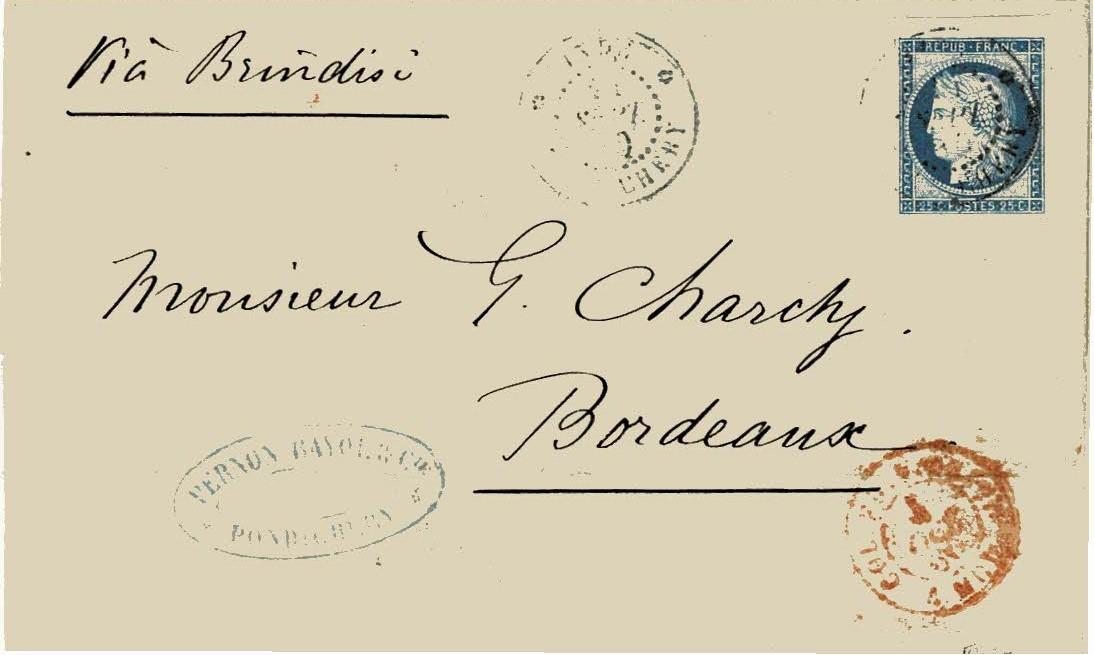 Vià Brindisi
REPUB·FRANC
25·C·POSTES·25·C
INDE
CHERY
Monsieur G. Charchy.
Bordeaux
VERNON BAYOL & CO
PONDICHERY
COL